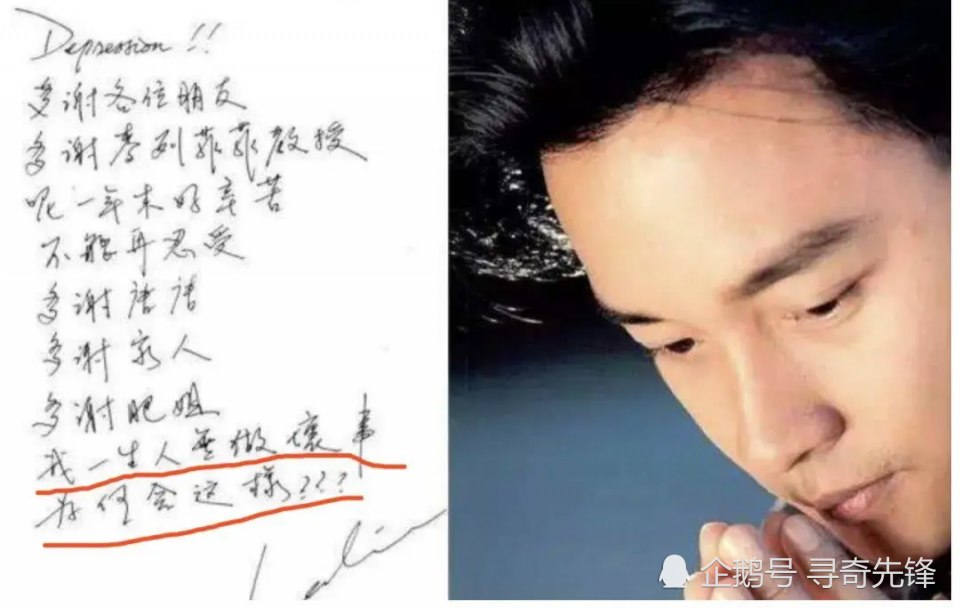 Depression!!
多谢各位朋友
多谢麦列菲菲教授
呢一年来好辛苦
不能再忍受
多谢唐唐
多谢家人
多谢肥姐
我一生人无做坏事
为何会这样???
Leslie
企鹅号 寻奇先锋